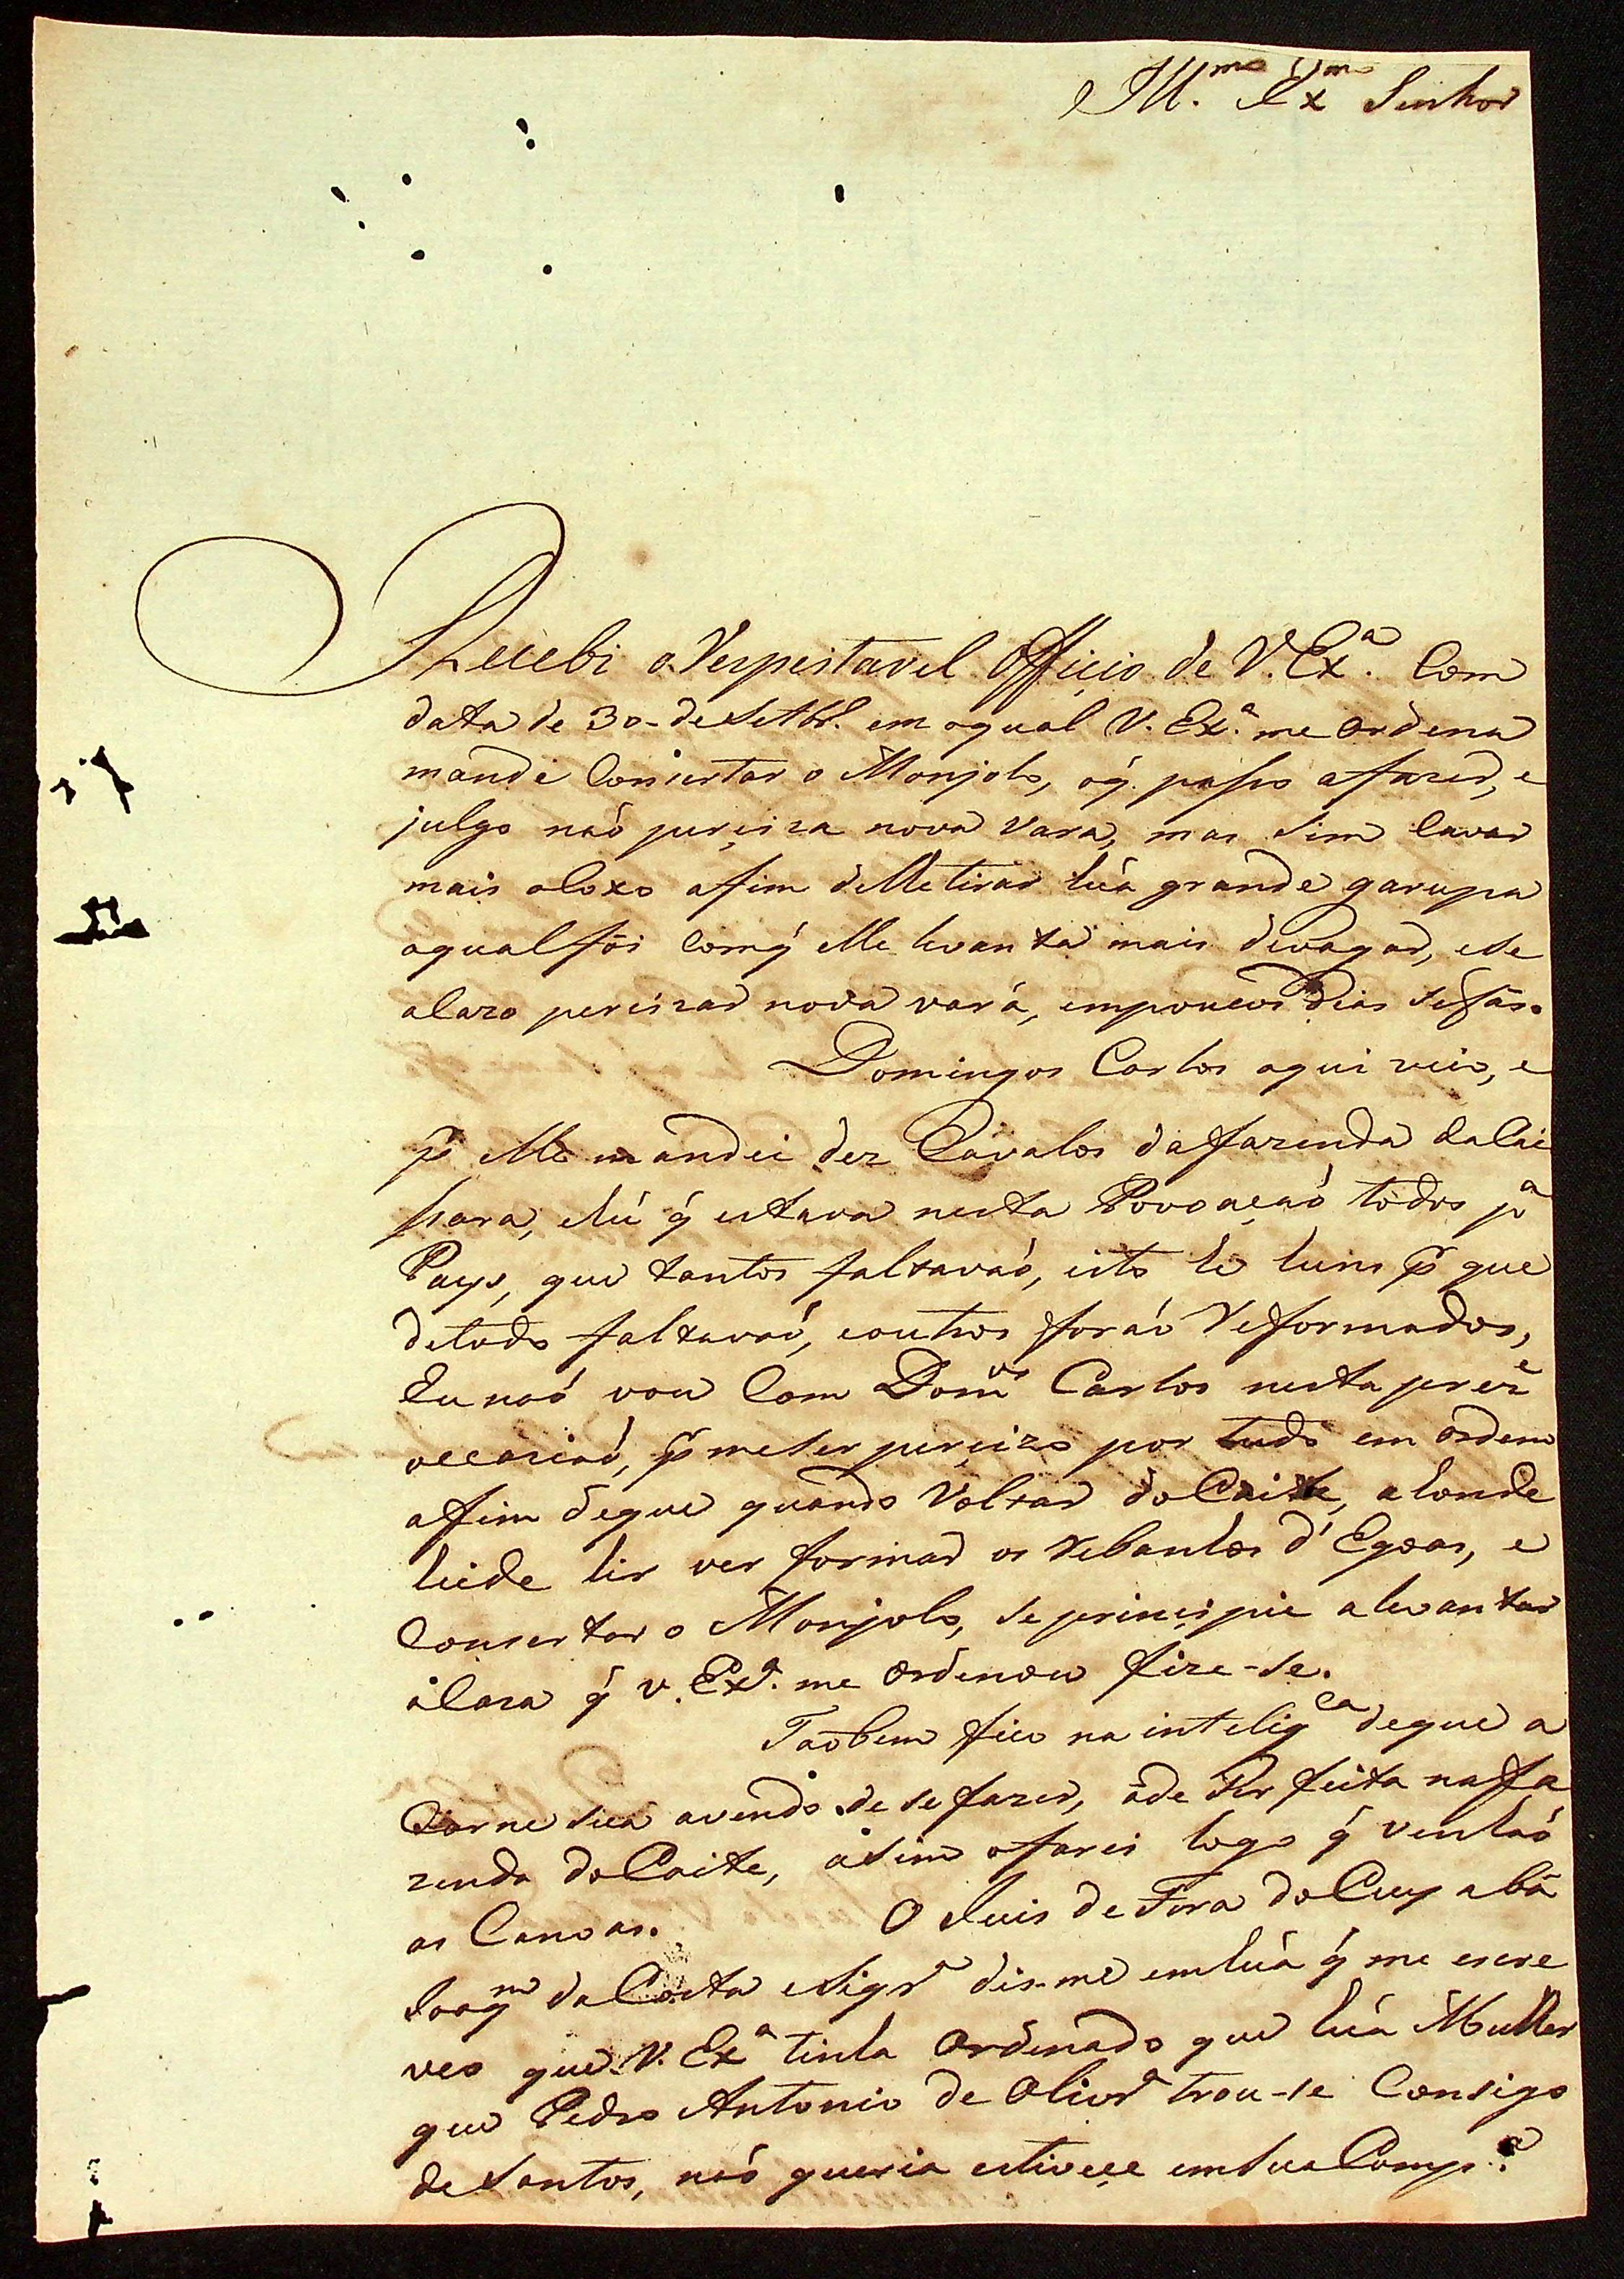 Ill.mo Exmo Senhor
Recebi o Respeitavel Officio de V. Exa. Com
data de 30 de Setbr.o em oqual V. Exa. me ordena
mande Consertar o Monjolo, oq̃ passo afazer, e
julgo naó perçiza nova Vara, mas sim Cavar
mais oCoxo afim deLhe tirar huá grande garupa
aqual fós Comq̃ elle levanta mais devagar, ese
acazo percizar nova vara, empoucos Dias sefás.
Domingos Carlos aqui veio, e
pr elle mandei dez Cavalos dafazenda daCai
sara, ehú q̃ estava nesta Povoaçaó todos pa
Pays, que tantos faltavaó, isto he huns pr que
detodo faltavaó, eoutros foraó Reformados,
Eu naó vou Com Domos Carlos nesta preze
occasiaó, pr meser perçizo por tudo em ordem
afim deque quando Voltar doCaite, a honde
heide hir ver formar os Rebanhos d'Egoas, e
Consertar o Monjolo, se prinçipie alevantar
aCaza q̃ V. Exa. me Ordenou fize-se.
Taobem fico na inteligca deque a
Carne seca avendo de se fazer, áde ser feita nafa
zenda doCaite, asim ofarei logo q̃ venhaó
as Canoas. O Juis de Fora doCuyabá
Joaqm da Costa eSiqra dis-me emhuá q̃ me escre
veo que V. Exa tinha Ordenado que huá Mulher
que Pedro Antonio de Olivra trou-se Consigo
deSantos, naó queria estiveçe emsuaCompa.